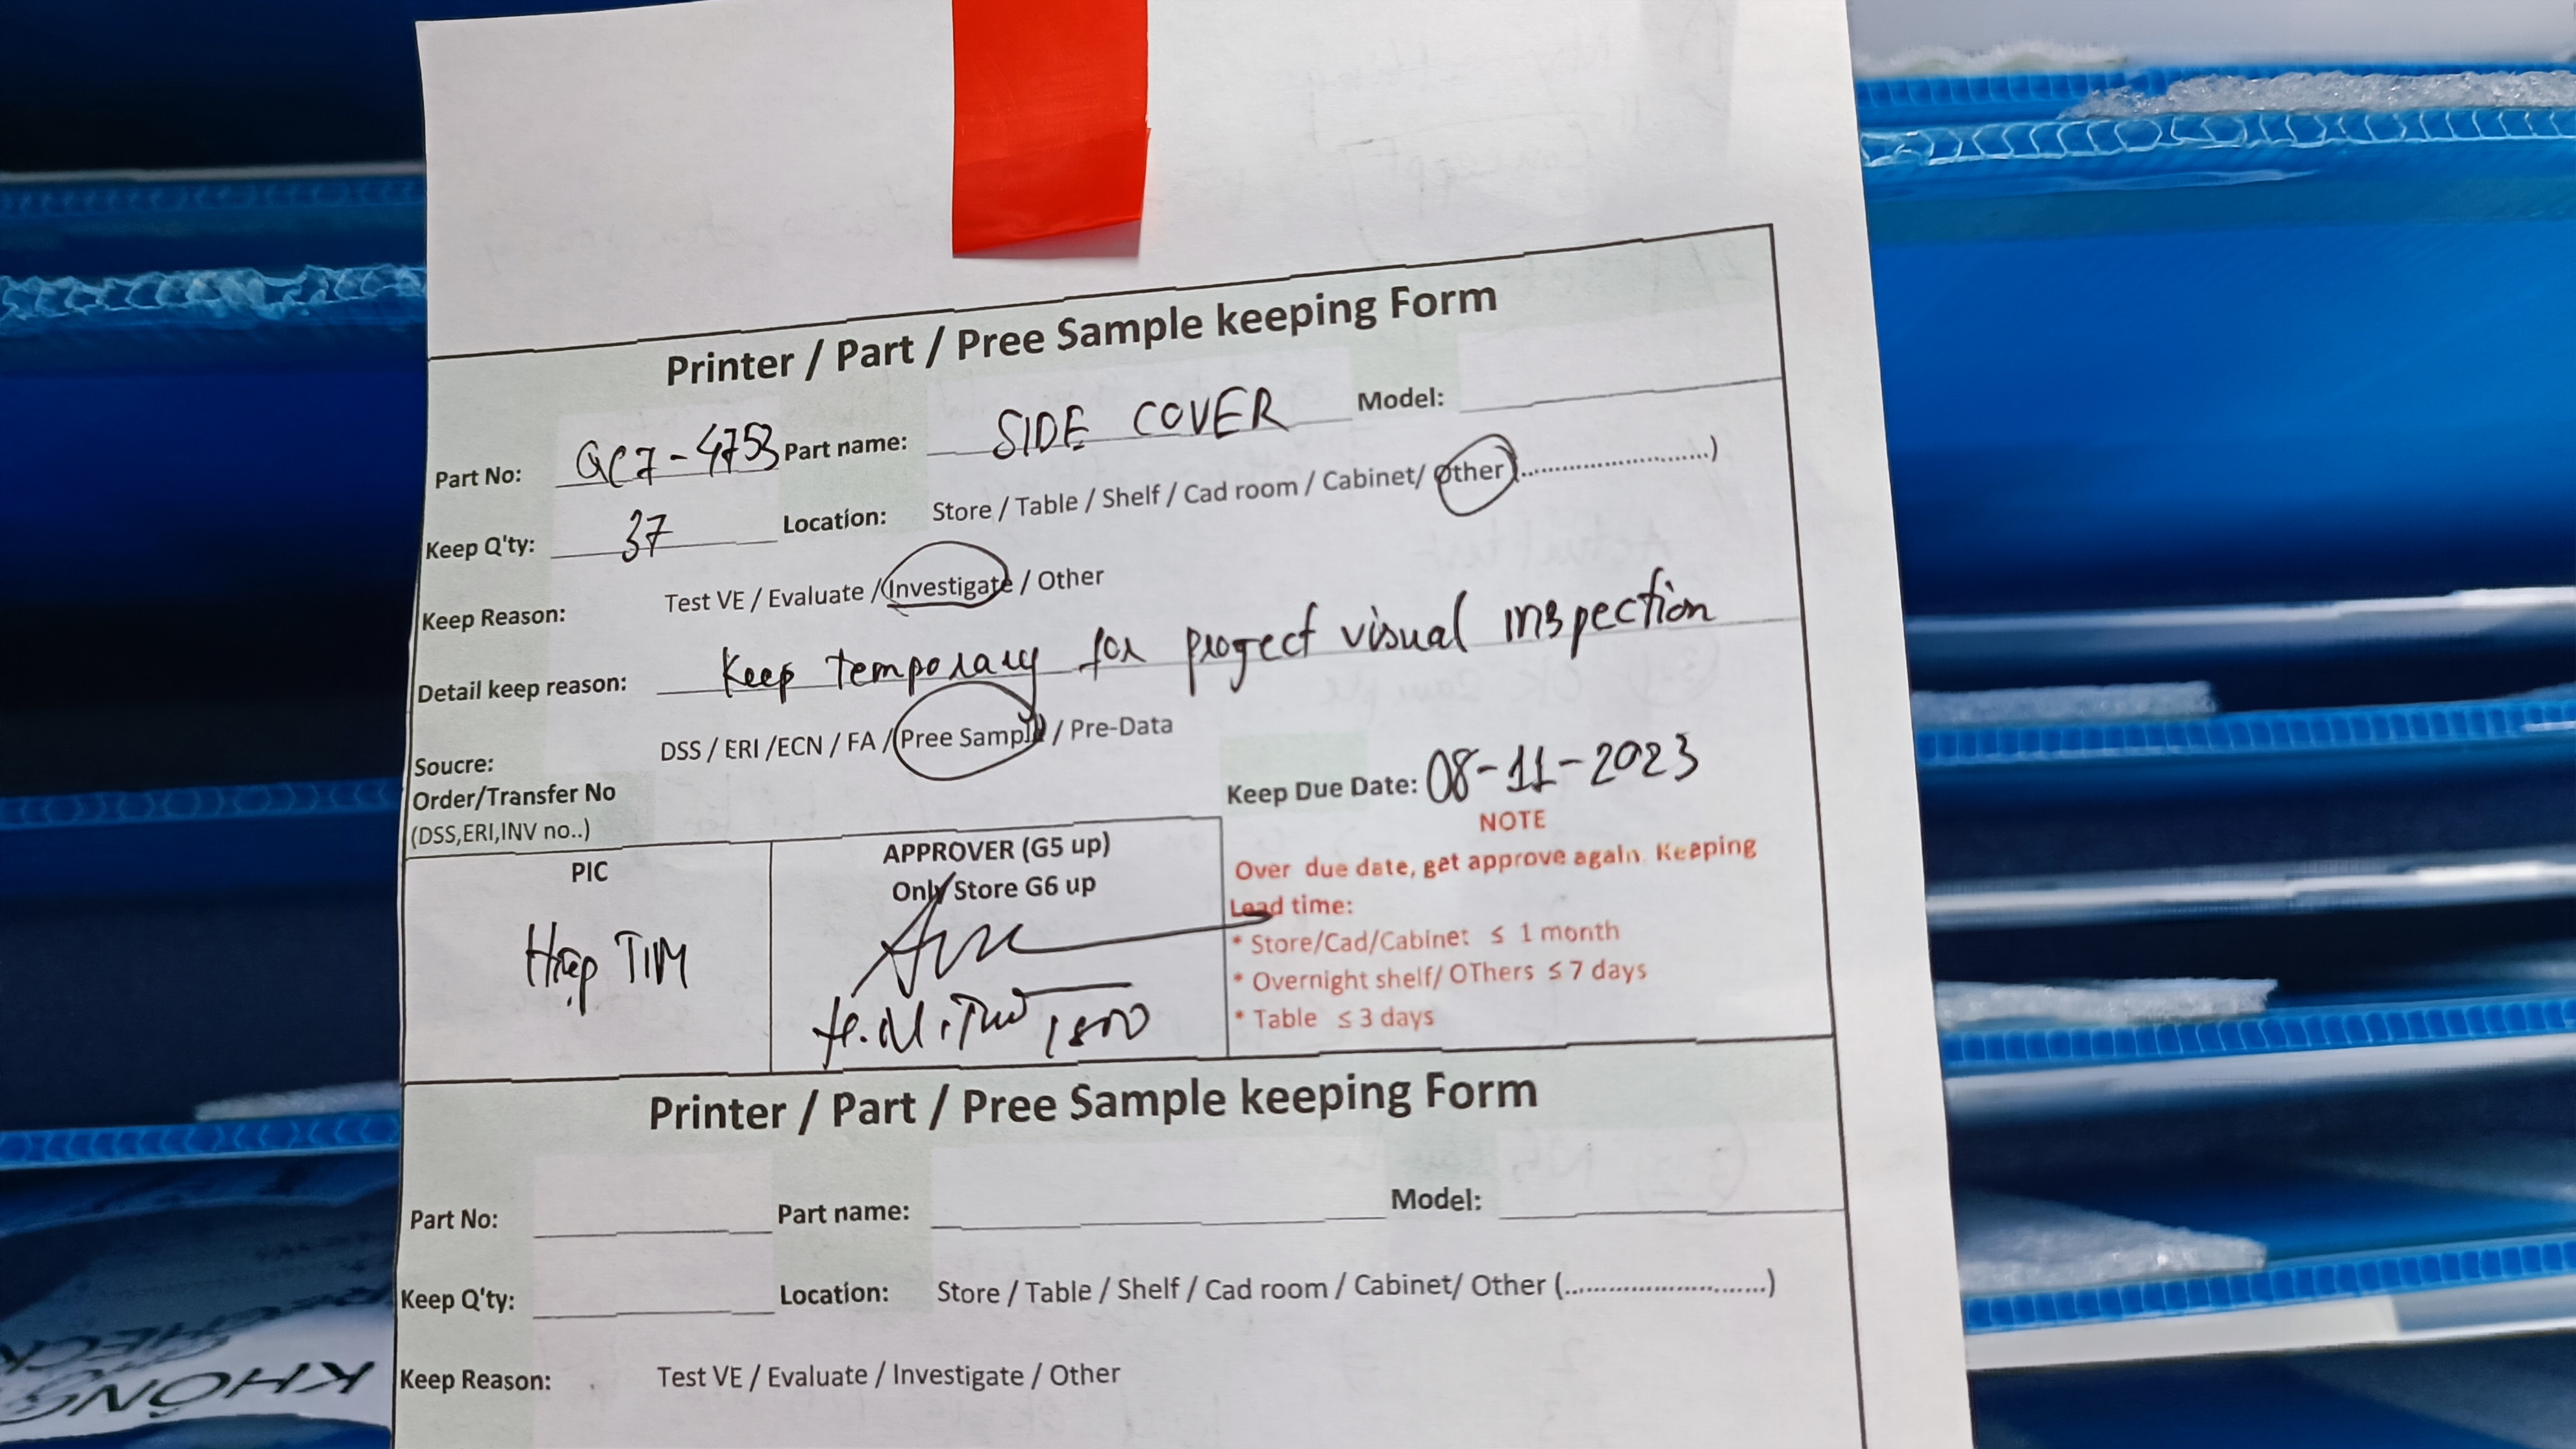 Printer / Part / Pree Sample keeping Form
Part No: QC7-4753 Part name: SIDE COVER Model:
Keep Q'ty: 37 Location: Store / Table / Shelf / Cad room / Cabinet/ Other (............................)
Keep Reason: Test VE / Evaluate / Investigate / Other
Detail keep reason: Keep temporary for project visual inspection
Soucre: DSS / ERI /ECN / FA / Pree Sample / Pre-Data
Order/Transfer No
(DSS,ERI,INV no..)
Keep Due Date: 08-11-2023
PIC
APPROVER (G5 up)
Only Store G6 up
NOTE
Over due date, get approve again. Keeping
Lead time:
* Store/Cad/Cabinet ≤ 1 month
* Overnight shelf/ OThers ≤ 7 days
* Table ≤ 3 days
Printer / Part / Pree Sample keeping Form
Part No: Part name: Model:
Keep Q'ty: Location: Store / Table / Shelf / Cad room / Cabinet/ Other (............................)
Keep Reason: Test VE / Evaluate / Investigate / Other
KHÔNG